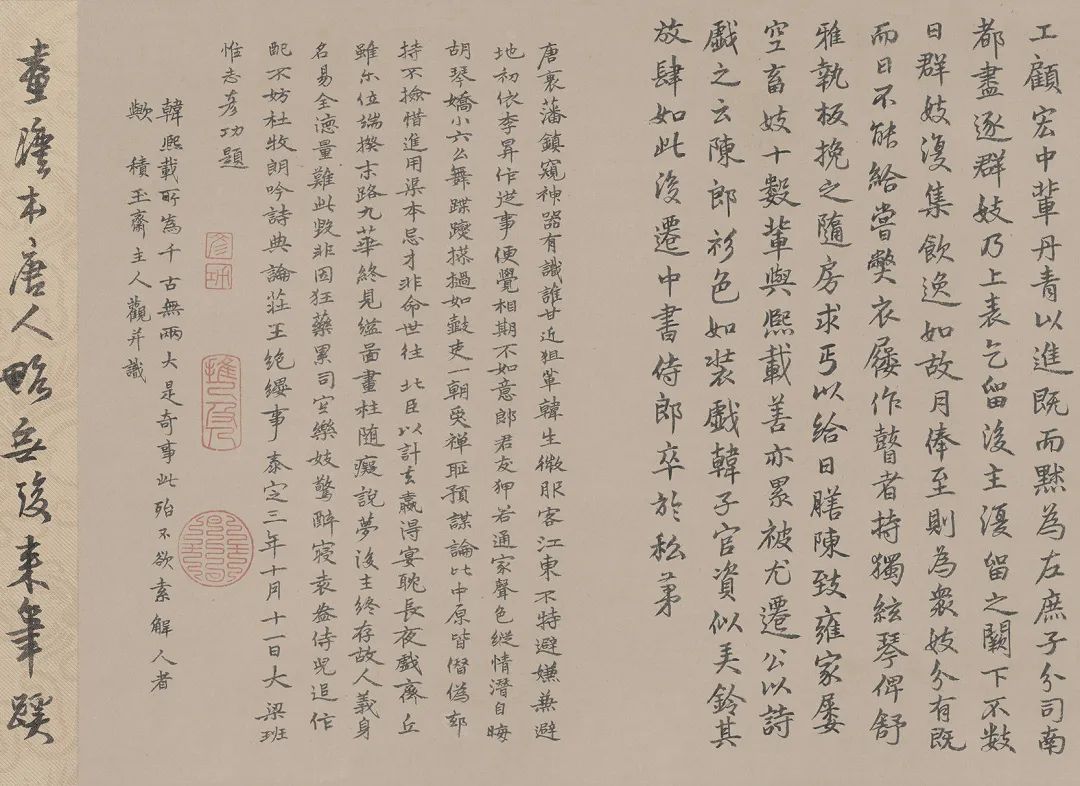 工顧宏中輩丹青以進既而黜為左庶子分司南
都盡逐群妓乃上表乞留後主復留之闕下不數
日群妓復集飲逸如故月俸至則為衆妓分有既
而日不能給嘗弊衣屨作瞽者持獨絃琴俾舒
雅執板挽之隨房求丐以給日膳陳致雍家屢
空畜妓十數輩與熙載善亦累被尤遷公以詩
戲之云陳郎衫色如裝戲韓子官資似美鈴其
放肆如此後遷中書侍郎卒於私苐
唐衰藩鎮窺神器有識誰甘近狙輩韓生微服客江東不特避嫌兼避
地初依李昪作逆事便覺相期不如意郎君友狎若通家聲色縱情潛自晦
胡琴嬌小六幺舞蹀躞摻撾如鼓吏一朝受禪恥預謀論比中原皆僭偽却
持不撿惜進用渠本忌才非命世往北臣以計去贏得宴耽長夜戲齊丘
雖尔位端揆末路九華終見縊圖畫柱随癡說夢後主終存故人義身
名易全德量難此毀非因狂藥累司空樂妓驚醉寢袁盎侍兒追作
配不妨杜牧朗吟詩與論莊王絕纓事 泰定三年十月十一日大梁班
惟志彥功題
韓熙載所為千古無兩大是奇事此殆不欲索解人者
歟 積玉齋主人觀并識
畫確本唐人略無後來筆蹊